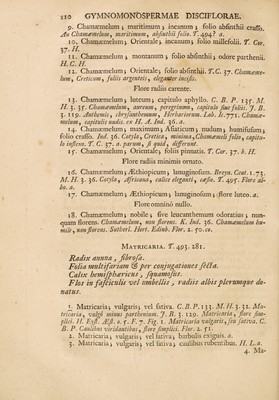 110 GYMNOMONOSPERMAE DISCIFLORAE.
9. Chamæmelum; maritimum; incanum; folio absinthii crasso.
An Chamæmelum, maritimum, absinthii folio. T. 494? a.
10. Chamæmelum; Orientale; incanum; folio millefolii. T. Cor.
37. H.
11. Chamæmelum; montanum; folio absinthii; odore parthenii.
H. C. H.
12. Chamæmelum; Orientale; folio absinthii. T. C. 37. Chamæme-
lum, Creticum, foliis argenteis, eleganter incisis.
Flore radiis carente.
13. Chamæmelum; luteum; capitulo aphyllo. C. B. P. 135. M.
H. 3. 35. Chamæmelum, aureum, peregrinum, capitulo sine foliis. J. B.
3. 119. Anthemis, chrysanthemum, Herbariorum. Lob. Ic. 771. Chamæ-
melum, capitulis nudis. ex H. A. Ind. 36. a.
14. Chamæmelum; maximum; Asiaticum; nudum; humifusum;
folio crasso. Ind. 36. Cotyla, Cretica, minima, Chamæmeli folio, capitu-
lo inflexo. T. C. 37. a. parum, si quid, differunt.
15. Chamæmelum; Orientale; foliis pinnatis. T. Cor. 37. b. H.
Flore radiis minimis ornato.
16. Chamæmelum; Æthiopicum; lanuginosum. Breyn. Cent. 1. 73.
M. H. 3. 36. Cotyla, africana, calice eleganti, cæsio. T. 495. Flore al-
bo. a.
17. Chamæmelum; Æthiopicum; lanuginosum; flore luteo. a.
Flore omninò nullo.
18. Chamæmelum; nobile; sive leucanthemum odoratius; nun-
quam florens. Chamæmelum, non florens. K. Ind. 36. Chamæmelum hu-
mile, non florens. Sutherl. Hort. Edinb. Flor. 2. 50. ca.
MATRICARIA. T. 493. 281.
Radix annua, fibrosa.
Folia multifariam & per conjugationes secta.
Calix hemisphæricus, squamosus.
Flos in fasciculis vel umbellis, radiis albis plerumque do-
natus.
1. Matricaria; vulgaris; vel sativa. C. B. P. 133. M. H. 3. 32. Ma-
tricaria, vulgò minus parthenium. J. B. 3. 129. Matricaria, flore sim-
plici. H. Eyst. Æst. o. 5. F. 7. Fig. 1. Matricaria vulgaris, seu sativa. C.
B. P. Caulibus viridantibus, flore simplici. Flor. 2. 51.
2. Matricaria; vulgaris; vel sativa; barbulis exiguis. a.
3. Matricaria; vulgaris; vel sativa; caulibus rubentibus. H. L. a.
4. Ma-